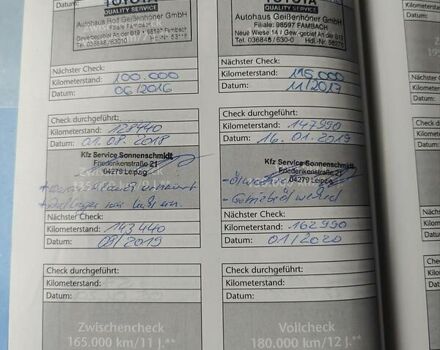 TOYOTA
QUALITY SERVICE
Autohaus Rolf Geißenhöner GmbH
Filiale Fambach
Tel. 036848/63010
Nächster Check:
Kilometerstand: 100.000
Datum: 06/2016
Check durchgeführt:
Kilometerstand: 128440
Datum: 01.08.2018
Kfz Service Sonnenschmidt
Friederikenstraße 21
04279 Leipzig
Nächster Check:
Kilometerstand: 143440
Datum: 09/2019
Check durchgeführt:
Kilometerstand:
Datum:
Zwischencheck
165.000 km/11 J.**
TOYOTA
QUALITY SERVICE
Autohaus Geißenhöner GmbH
Filiale: 98597 FAMBACH
Neue Wiese 14 / Gew.-gebiet an der B19
Tel. 036848/630-0
Nächster Check:
Kilometerstand: 115.000
Datum: 11/2017
Check durchgeführt:
Kilometerstand: 147990
Datum: 16.01.2019
Kfz Service Sonnenschmidt
Friederikenstraße 21
04279 Leipzig
Nächster Check:
Kilometerstand: 162990
Datum: 01/2020
Check durchgeführt:
Kilometerstand:
Datum:
Vollcheck
180.000 km/12 J.**